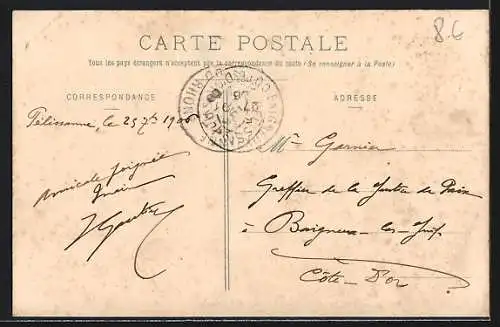 8.6
CARTE POSTALE
Tous les pays étrangers n'acceptent pas la correspondance au recto (Se renseigner à la Poste)
CORRESPONDANCE
ADRESSE
Pélissanne, le 25 7bre 190
Amicale poignée
de main
Mr Garnier
Greffier de la Justice de Paix
à Baigneux-les-Juifs
Côte-D'or